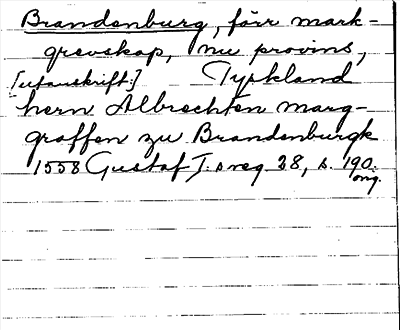 Brandenburg, förr mark-
grevskap, nu provins,
[utanskrift:] Tyskland
hern Albrechten marg-
graffen zu Brandenburgk
1558 Gustaf I:s reg. 28, s. 190.
orig.